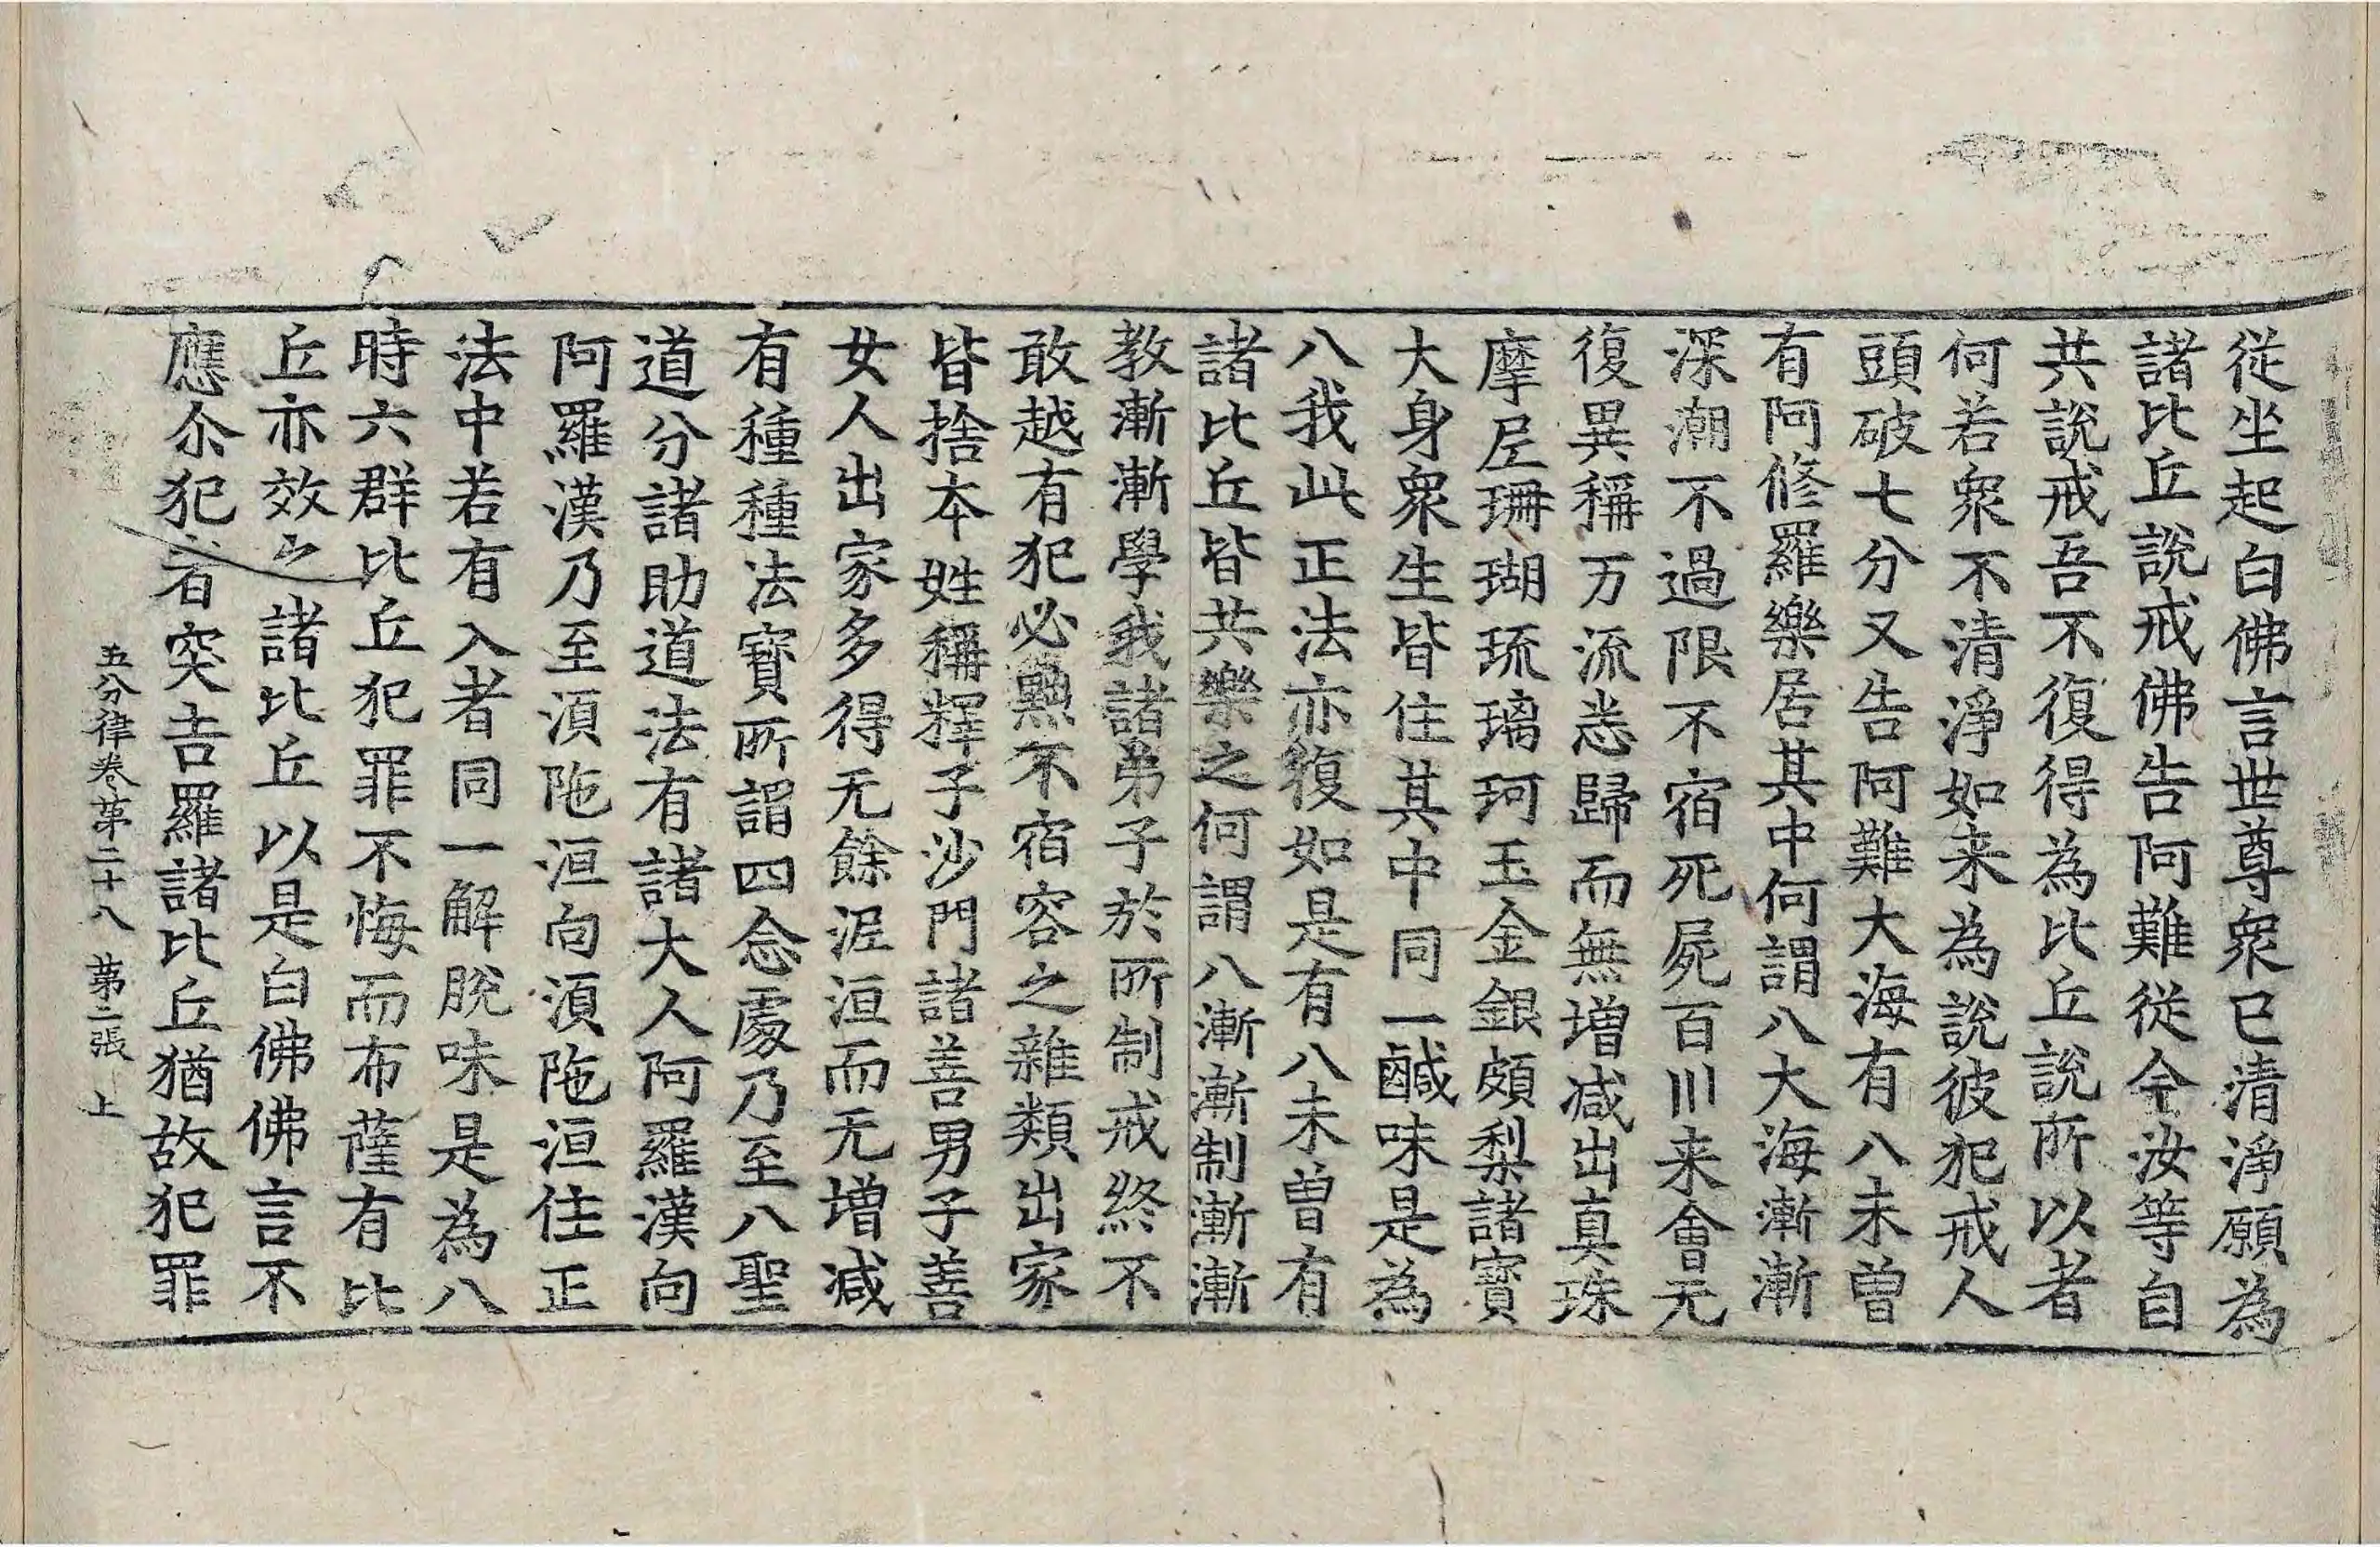 從坐起白佛言世尊衆已清淨願為
諸比丘說戒佛告阿難從今汝等自
共說戒吾不復得為比丘說所以者
何若衆不清淨如来為說彼犯戒人
頭破七分又告阿難大海有八未曾
有阿修羅樂居其中何謂八大海漸漸
深潮不過限不宿死屍百川来會无
復異稱万流悉歸而無增减出真珠
摩尼珊瑚琉璃珂玉金銀頗梨諸寶
大身衆生皆住其中同一鹹味是為
八我此正法亦復如是有八未曾有
諸比丘皆共樂之何謂八漸漸制漸漸
教漸漸學我諸弟子於所制戒終不
敢越有犯必黜不宿容之雜類出家
皆捨本姓稱釋子沙門諸善男子善
女人出家多得无餘泥洹而无增减
有種種法寶所謂四念處乃至八聖
道分諸助道法有諸大人阿羅漢向
阿羅漢乃至湏陁洹向湏陁洹住正
法中若有入者同一解脫味是為八
時六群比丘犯罪不悔而布薩有比
丘亦效之諸比丘以是白佛佛言不
應尒犯者突吉羅諸比丘猶故犯罪
五分律卷苐二十八 苐二張 上